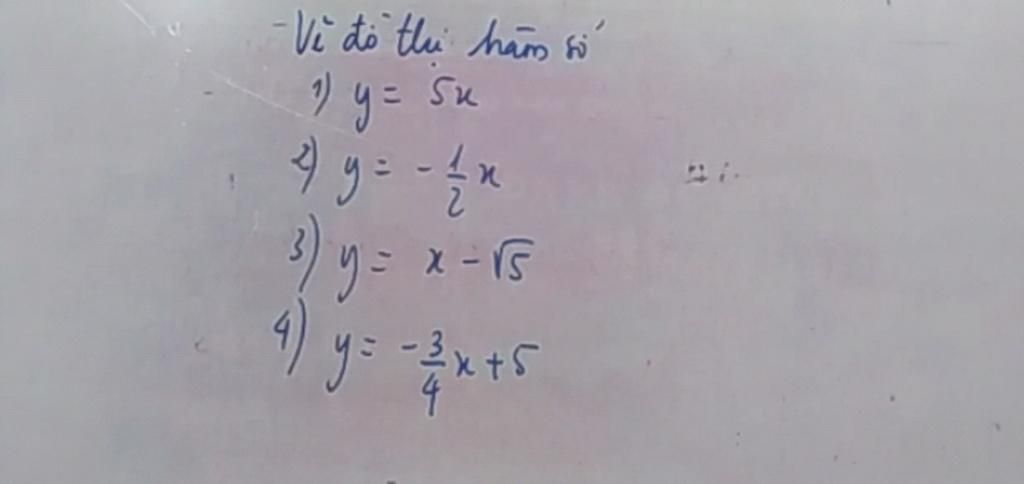 - Vẽ đồ thị hàm số
1) y = 5x
2) y = -1/2 x
3) y = x - √5
4) y = -3/4 x + 5